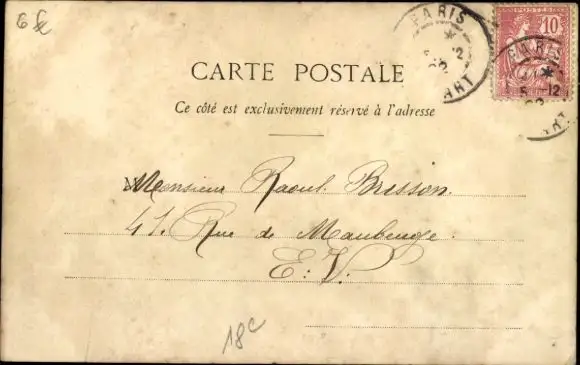 6 fr
PARIS
5 12
02
DÉPART
POSTES
10
PARIS
5 12
02
CARTE POSTALE
Ce côté est exclusivement réservé à l'adresse
M Monsieur Raoul Brisson.
41. Rue de Maubeuge.
E. V.
18c